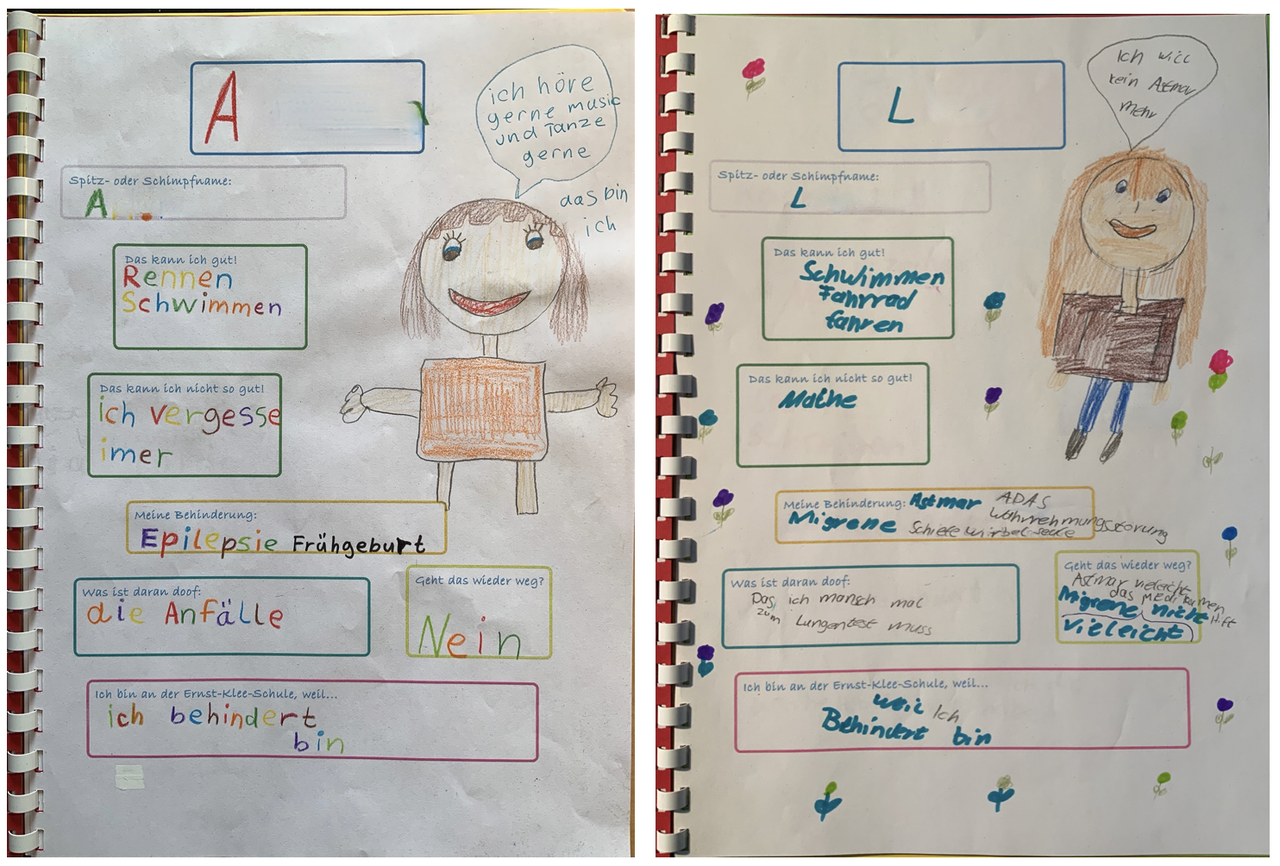 A
ich höre
gerne music
und Tanze
gerne
das bin
ich
Spitz- oder Schimpfname:
A
Das kann ich gut!
Rennen
Schwimmen
Das kann ich nicht so gut!
ich vergesse
imer
Meine Behinderung:
Epilepsie Frühgeburt
Was ist daran doof:
die Anfälle
Geht das wieder weg?
Nein
Ich bin an der Ernst-Klee-Schule, weil...
ich behindert
bin
L
Ich will
kein Astmar
mehr
Spitz- oder Schimpfname:
L
Das kann ich gut!
Schwimmen
Fahrrad
fahren
Das kann ich nicht so gut!
Mathe
Meine Behinderung: Astmar ADAS
Migrene Wahrnehmungsstörung
Schiefe
Was ist daran doof:
Das ich mansch mal
zum Lungentest muss
Geht das wieder weg?
Astmar
das
Migrene nicht
vieleicht
Ich bin an der Ernst-Klee-Schule, weil...
weil Ich
Behindert bin